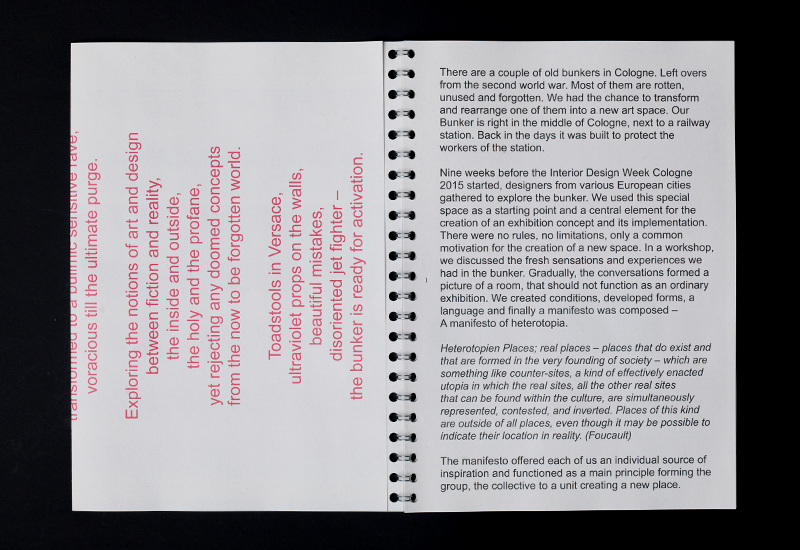 transformed to a bulimic sensitive rave,
voracious till the ultimate purge.
Exploring the notions of art and design
between fiction and reality,
the inside and outside,
the holy and the profane,
yet rejecting any doomed concepts
from the now to be forgotten world.
Toadstools in Versace,
ultraviolet props on the walls,
beautiful mistakes,
disoriented jet fighter –
the bunker is ready for activation.
There are a couple of old bunkers in Cologne. Left overs
from the second world war. Most of them are rotten,
unused and forgotten. We had the chance to transform
and rearrange one of them into a new art space. Our
Bunker is right in the middle of Cologne, next to a railway
station. Back in the days it was built to protect the
workers of the station.
Nine weeks before the Interior Design Week Cologne
2015 started, designers from various European cities
gathered to explore the bunker. We used this special
space as a starting point and a central element for the
creation of an exhibition concept and its implementation.
There were no rules, no limitations, only a common
motivation for the creation of a new space. In a workshop,
we discussed the fresh sensations and experiences we
had in the bunker. Gradually, the conversations formed a
picture of a room, that should not function as an ordinary
exhibition. We created conditions, developed forms, a
language and finally a manifesto was composed –
A manifesto of heterotopia.
Heterotopien Places; real places – places that do exist and
that are formed in the very founding of society – which are
something like counter-sites, a kind of effectively enacted
utopia in which the real sites, all the other real sites
that can be found within the culture, are simultaneously
represented, contested, and inverted. Places of this kind
are outside of all places, even though it may be possible to
indicate their location in reality. (Foucault)
The manifesto offered each of us an individual source of
inspiration and functioned as a main principle forming the
group, the collective to a unit creating a new place.